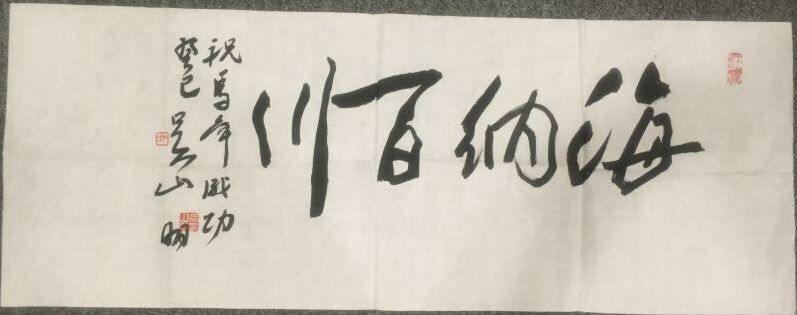 海纳百川
祝马年成功
癸巳 吴山明